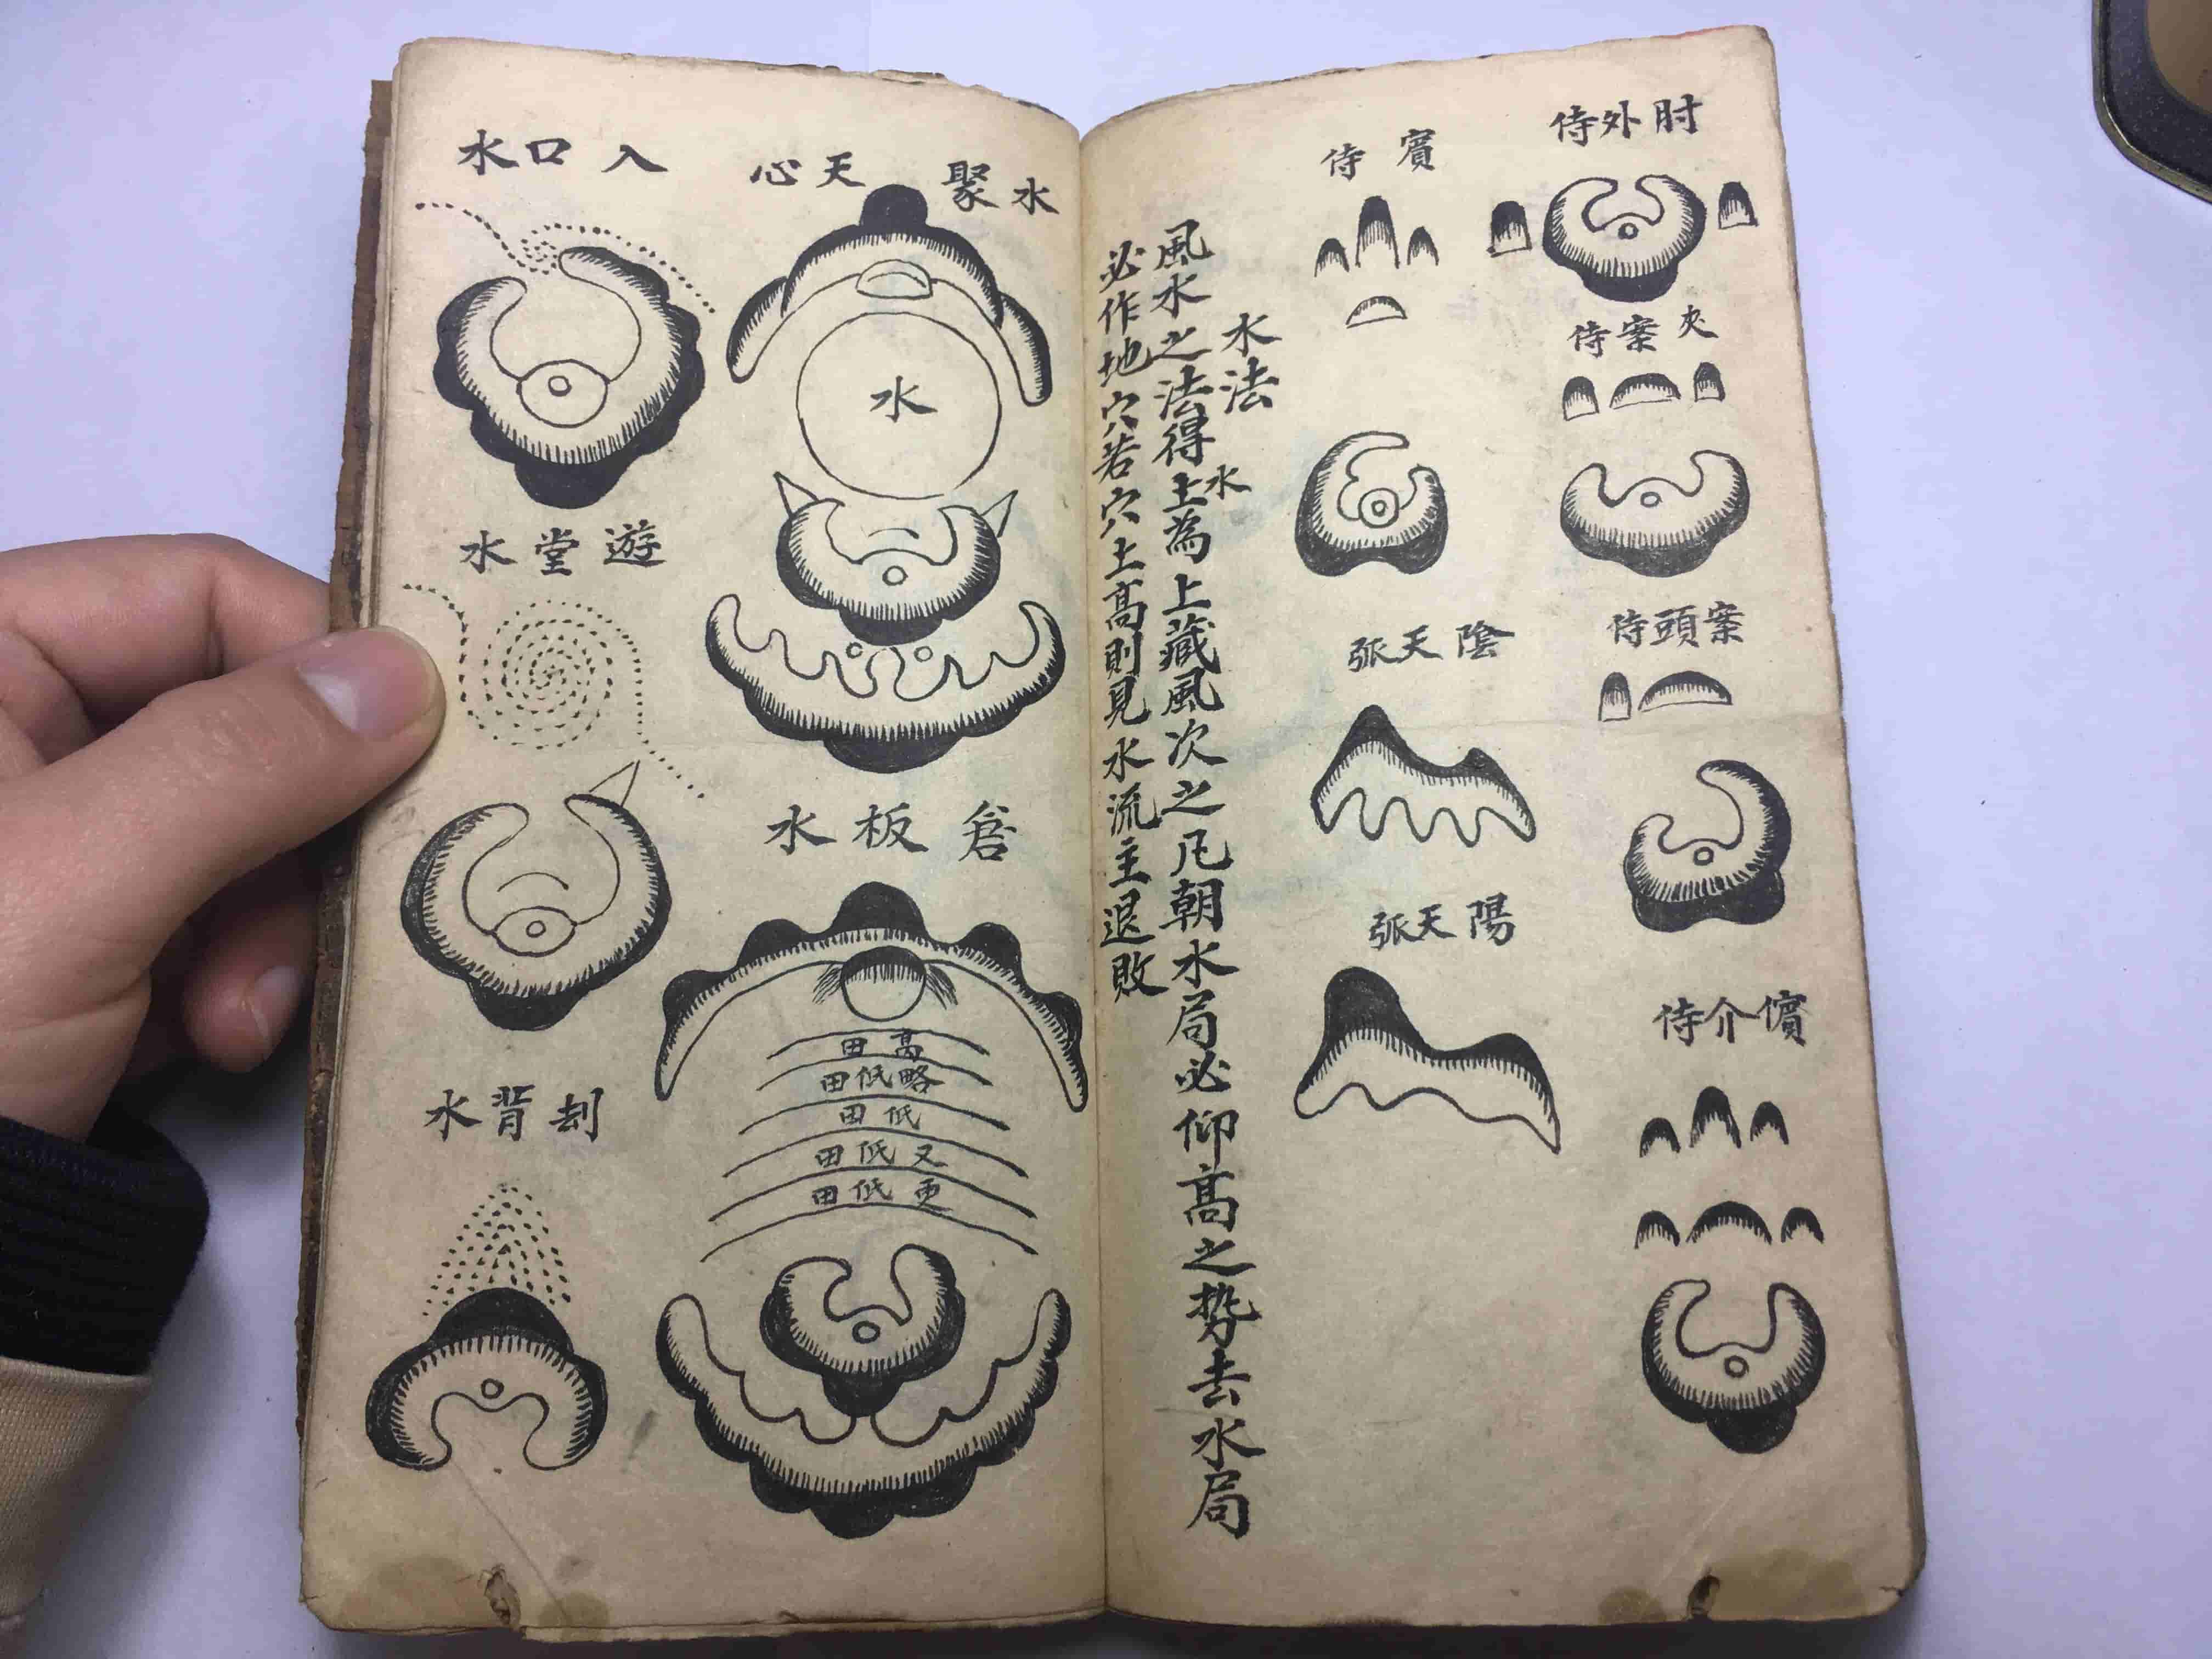 肘外侍
夾案侍
案頭侍
儐介侍
賓侍
陰天張
陽天張
水法
風水之法得土為上藏風次之凡朝水局必仰高之勢去水局
水
必作地穴若穴土高則見水流主退敗
水聚天心
水
倉板水
高田
略低田
低田
又低田
更低田
入口水
遊堂水
刦背水